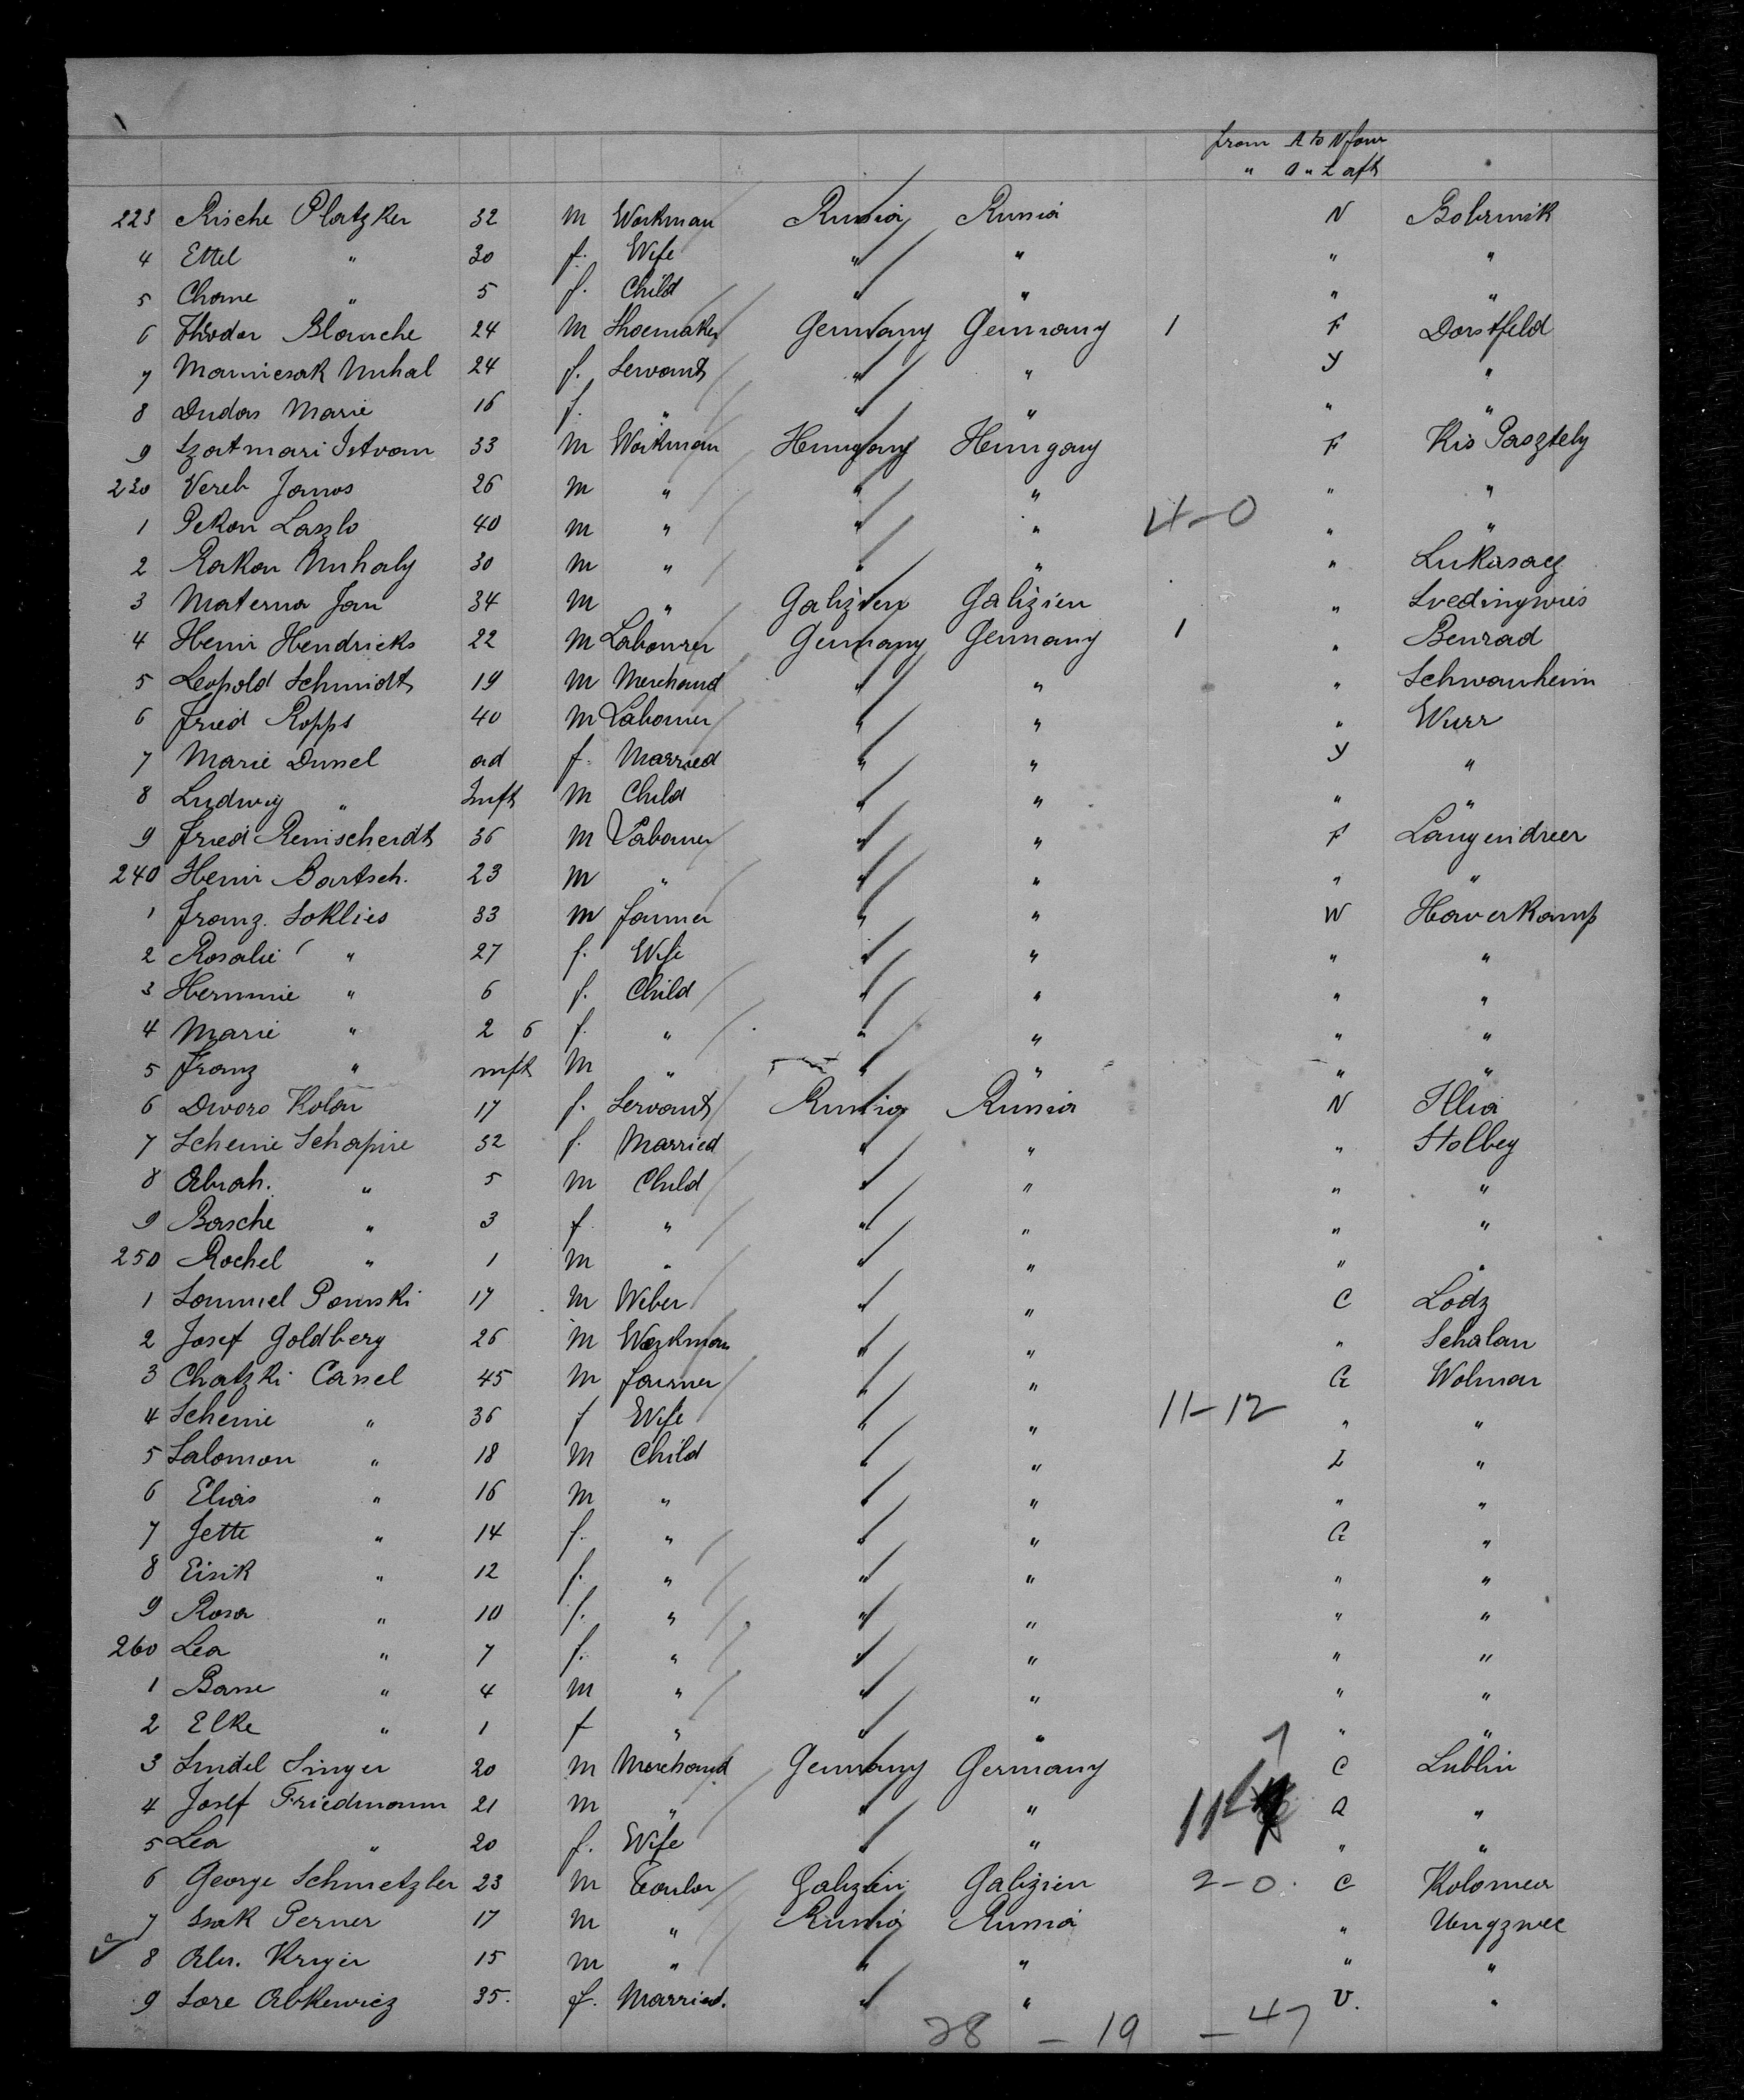 from A to N four
" O " Z aft
223 Rische Platzker 32 M Workman Russia Russia N Bobrinik
4 Ettel " 30 f. Wife " " " "
5 Chane " 5 f. Child " " " "
6 Theodor Blanche 24 M Shoemaker Germany Germany 1 F Dorstfeld
7 24 f. Servant " " Y "
8 Dudas Marie 16 f. " " " " "
9 Szatmari Istvan 33 M Workman Hungary Hungary F Kis Pasztely
230 Vereb Janos 26 M " " " " "
1 Pekon Laszlo 40 M " " " 4-0 " "
2 Rakon Muhaly 30 M " " " "
3 Materna Jan 34 M " Galizien Galizien "
4 Henri Hendricks 22 M Labourer Germany Germany 1 " Benrad
5 Leopold Schmidt 19 M Merchand " " " Schwanheim
6 Fried Ropps 40 M Labourer " " " Wurr
7 Marie Dussel ad f. Married " " Y "
8 Ludwig " Inft M Child " " " "
9 Fried Remscheidt 36 M Labourer " " F Langendreer
240 Henri Bartsch. 23 M " " " " "
1 Franz Soklies 33 M farmer " " W Haverkamp
2 Rosalie " 27 f. Wife " " " "
3 Hermine " 6 f. Child " " " "
4 Marie " 2 6 f. " " " " "
5 Franz " inft M " " " " "
6 Dworo Kolan 17 f. Servant Russia Russia N Illia
7 Scheine Schapire 32 f. Married " " " Stolbey
8 Abrah. " 5 M Child " " " "
9 Basche " 3 f. " " " " "
250 Rochel " 1 M " " " " "
1 Sammel Pomski 17 M Weber " " C Lodz
2 Josef Goldberg 26 M Workman " " " Schalan
3 Chatzki Cassel 45 M farmer " " G Wolmar
4 Scheine " 36 f Wife " " 11-12 " "
5 Salomon " 18 M Child " " Z "
6 Elias " 16 M " " " " "
7 Jette " 14 f. " " " G "
8 Eisik " 12 f. " " " " "
9 Rosa " 10 f. " " " " "
260 Lea " 7 f. " " " " "
1 Basse " 4 M " " " " "
2 Elke " 1 f " " " " "
3 Singer 20 M Merchand Germany Germany C Lublin
4 Josef Friedmann 21 M " " " "
5 Lea " 20 f. Wife " " " "
6 George Schmetzler 23 M Galizien Galizien 2-0. C Kolomea
7 Isak Perner 17 M " Russia Russia "
8 Abr. Kryger 15 M " " " " "
9 Sore Abkewicz 35. f. Married. " " U. "
28 - 19 - 47